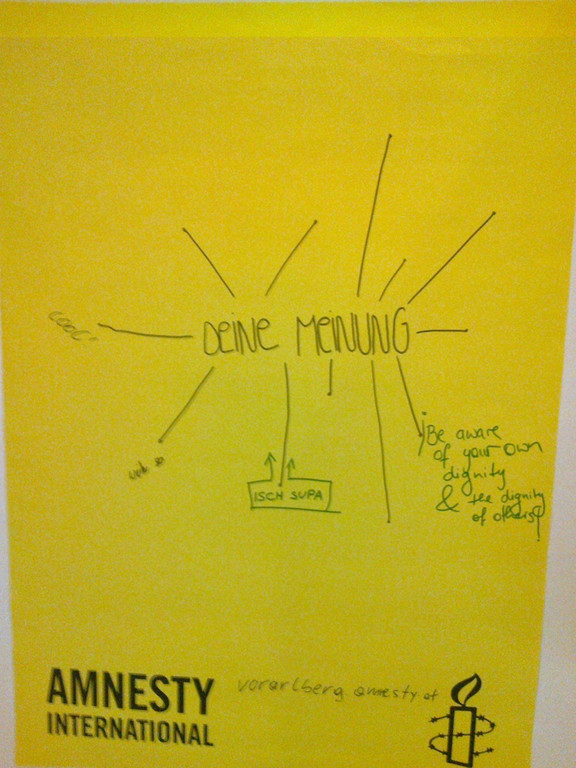 cool!
DEINE MEINUNG
und so
ISCH SUPA
Be aware
of your own
dignity
& the dignity
of others!
AMNESTY
INTERNATIONAL
vorarlberg amnesty at